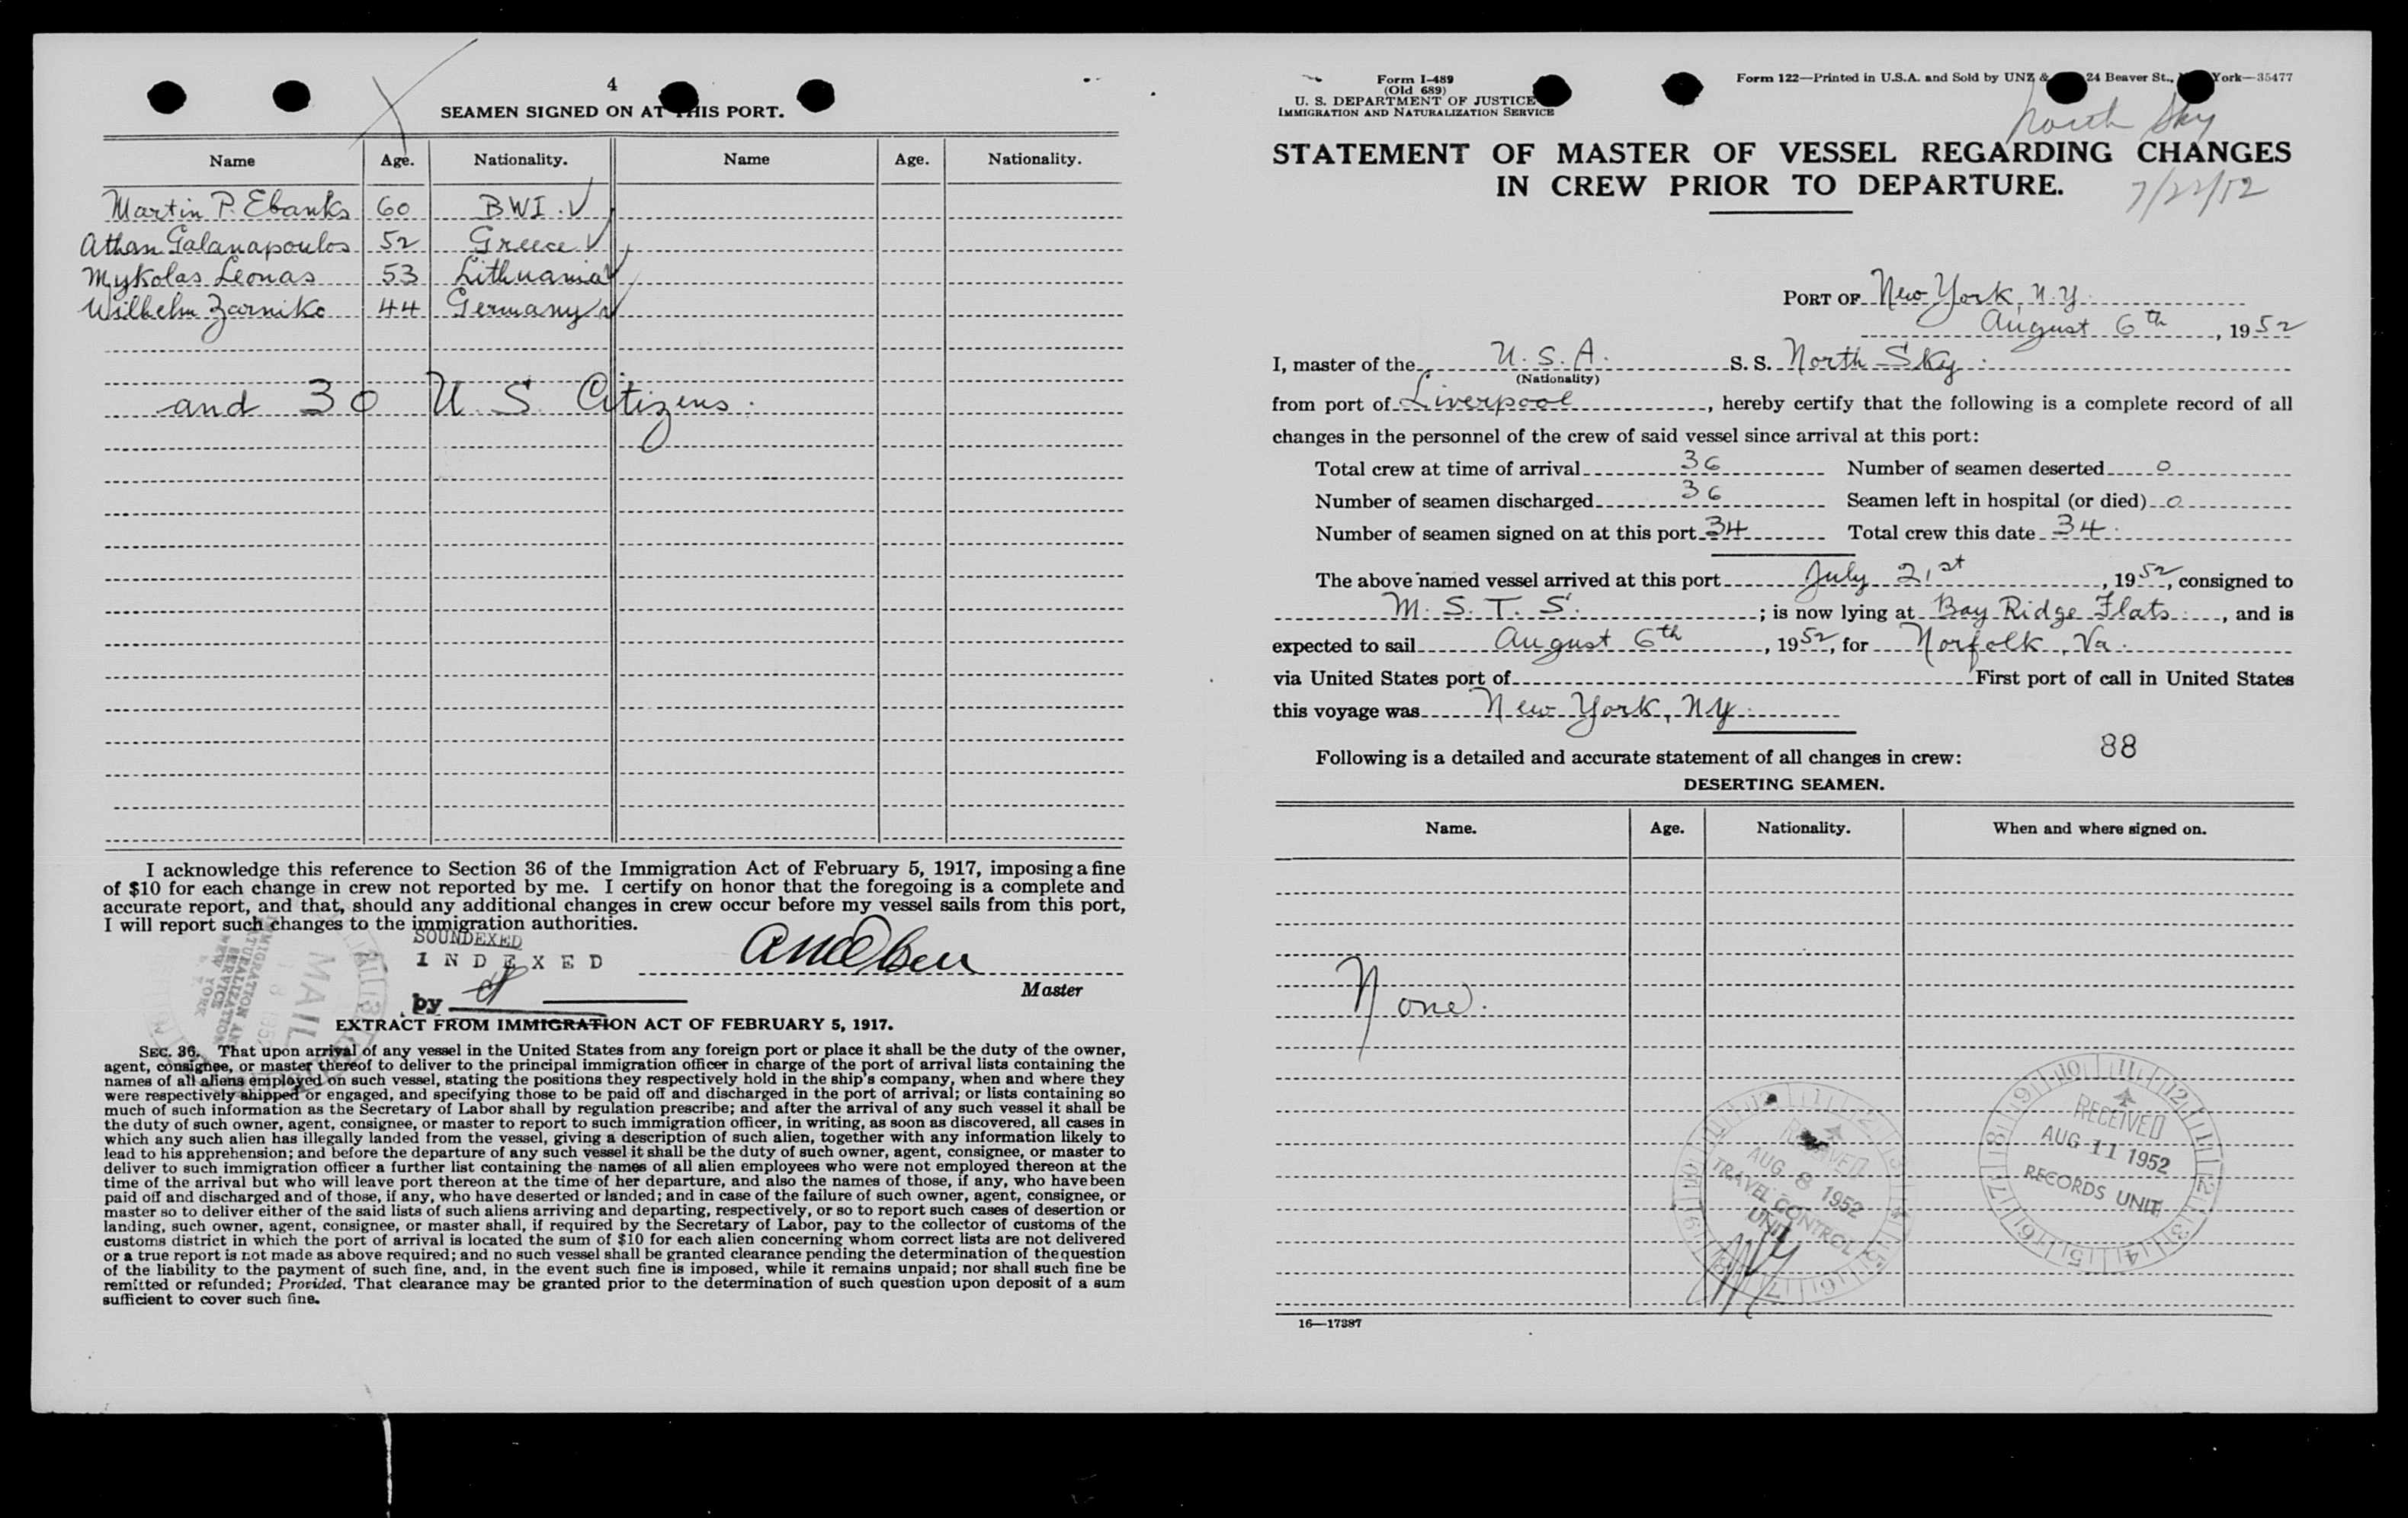 4
SEAMEN SIGNED ON AT THIS PORT.
Name Age. Nationality. Name Age. Nationality.
Martin P. Ebanks 60 BWI.
Athan Galanapoulos 52 Greece
Mykolas Leonas 53 Lithuania
Wilhelm Zarniko 44 Germany
and 30 U. S. Citizens.
I acknowledge this reference to Section 36 of the Immigration Act of February 5, 1917, imposing a fine
of $10 for each change in crew not reported by me. I certify on honor that the foregoing is a complete and
accurate report, and that, should any additional changes in crew occur before my vessel sails from this port,
I will report such changes to the immigration authorities.
SOUNDEXED
INDEXED
by
Master
MAIL
IMMIGRATION AND
NATURALIZATION
SERVICE
NEW YORK
EXTRACT FROM IMMIGRATION ACT OF FEBRUARY 5, 1917.
SEC. 36. That upon arrival of any vessel in the United States from any foreign port or place it shall be the duty of the owner,
agent, consignee, or master thereof to deliver to the principal immigration officer in charge of the port of arrival lists containing the
names of all aliens employed on such vessel, stating the positions they respectively hold in the ship's company, when and where they
were respectively shipped or engaged, and specifying those to be paid off and discharged in the port of arrival; or lists containing so
much of such information as the Secretary of Labor shall by regulation prescribe; and after the arrival of any such vessel it shall be
the duty of such owner, agent, consignee, or master to report to such immigration officer, in writing, as soon as discovered, all cases in
which any such alien has illegally landed from the vessel, giving a description of such alien, together with any information likely to
lead to his apprehension; and before the departure of any such vessel it shall be the duty of such owner, agent, consignee, or master to
deliver to such immigration officer a further list containing the names of all alien employees who were not employed thereon at the
time of the arrival but who will leave port thereon at the time of her departure, and also the names of those, if any, who have been
paid off and discharged and of those, if any, who have deserted or landed; and in case of the failure of such owner, agent, consignee, or
master so to deliver either of the said lists of such aliens arriving and departing, respectively, or so to report such cases of desertion or
landing, such owner, agent, consignee, or master shall, if required by the Secretary of Labor, pay to the collector of customs of the
customs district in which the port of arrival is located the sum of $10 for each alien concerning whom correct lists are not delivered
or a true report is not made as above required; and no such vessel shall be granted clearance pending the determination of the question
of the liability to the payment of such fine, and, in the event such fine is imposed, while it remains unpaid; nor shall such fine be
remitted or refunded; Provided, That clearance may be granted prior to the determination of such question upon deposit of a sum
sufficient to cover such fine.
Form I-489
(Old 689)
U. S. DEPARTMENT OF JUSTICE
IMMIGRATION AND NATURALIZATION SERVICE
Form 122—Printed in U.S.A. and Sold by UNZ & 24 Beaver St., York—35477
North Sky
STATEMENT OF MASTER OF VESSEL REGARDING CHANGES
IN CREW PRIOR TO DEPARTURE.
7/22/52
PORT OF New York, N.Y.
August 6th, 1952
I, master of the U. S. A. S. S. North Sky
(Nationality)
from port of Liverpool, hereby certify that the following is a complete record of all
changes in the personnel of the crew of said vessel since arrival at this port:
Total crew at time of arrival 36 Number of seamen deserted 0
Number of seamen discharged 36 Seamen left in hospital (or died) 0
Number of seamen signed on at this port 34 Total crew this date 34
The above named vessel arrived at this port July 21st, 1952, consigned to
M. S. T. S.; is now lying at Bay Ridge Flats, and is
expected to sail August 6th, 1952, for Norfolk, Va.
via United States port of First port of call in United States
this voyage was New York, NY.
Following is a detailed and accurate statement of all changes in crew:
88
DESERTING SEAMEN.
Name. Age. Nationality. When and where signed on.
None.
RECEIVED
AUG 8 1952
TRAVEL CONTROL
UNIT
RECEIVED
AUG 11 1952
RECORDS UNIT
16—17387